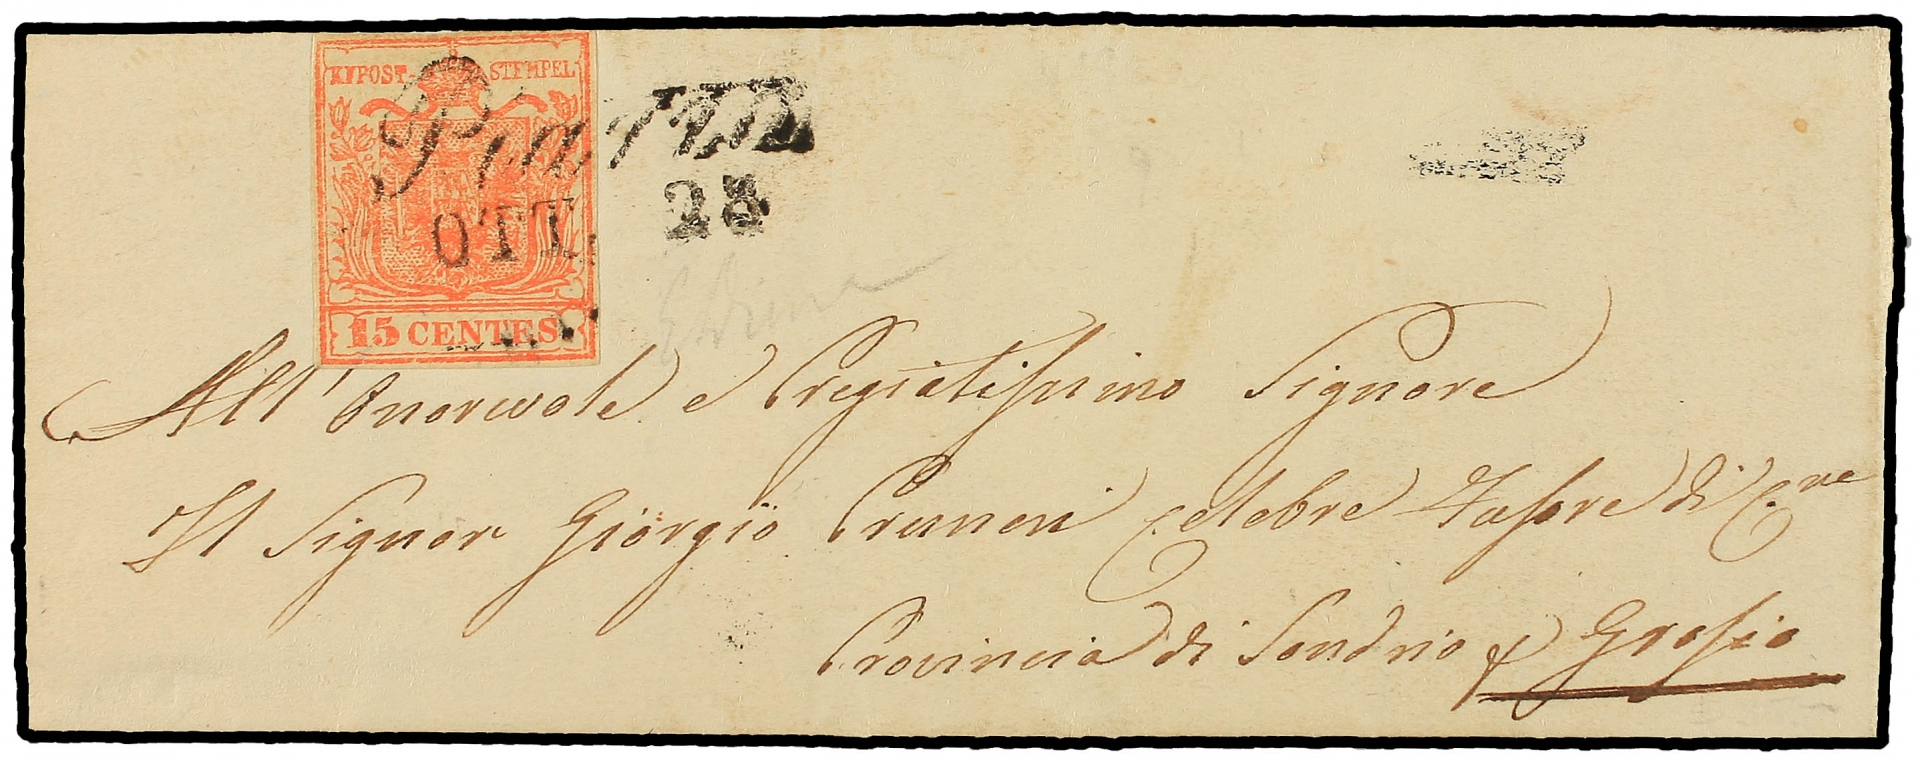 KK POST-STEMPEL
OTT. 23
15 CENTES.
All' Onorevole e Pregiatissimo Signore
Il Signor Giorgio Pruneri Celebre Tassore di C.re
Provincia di Sondrio p Grosio